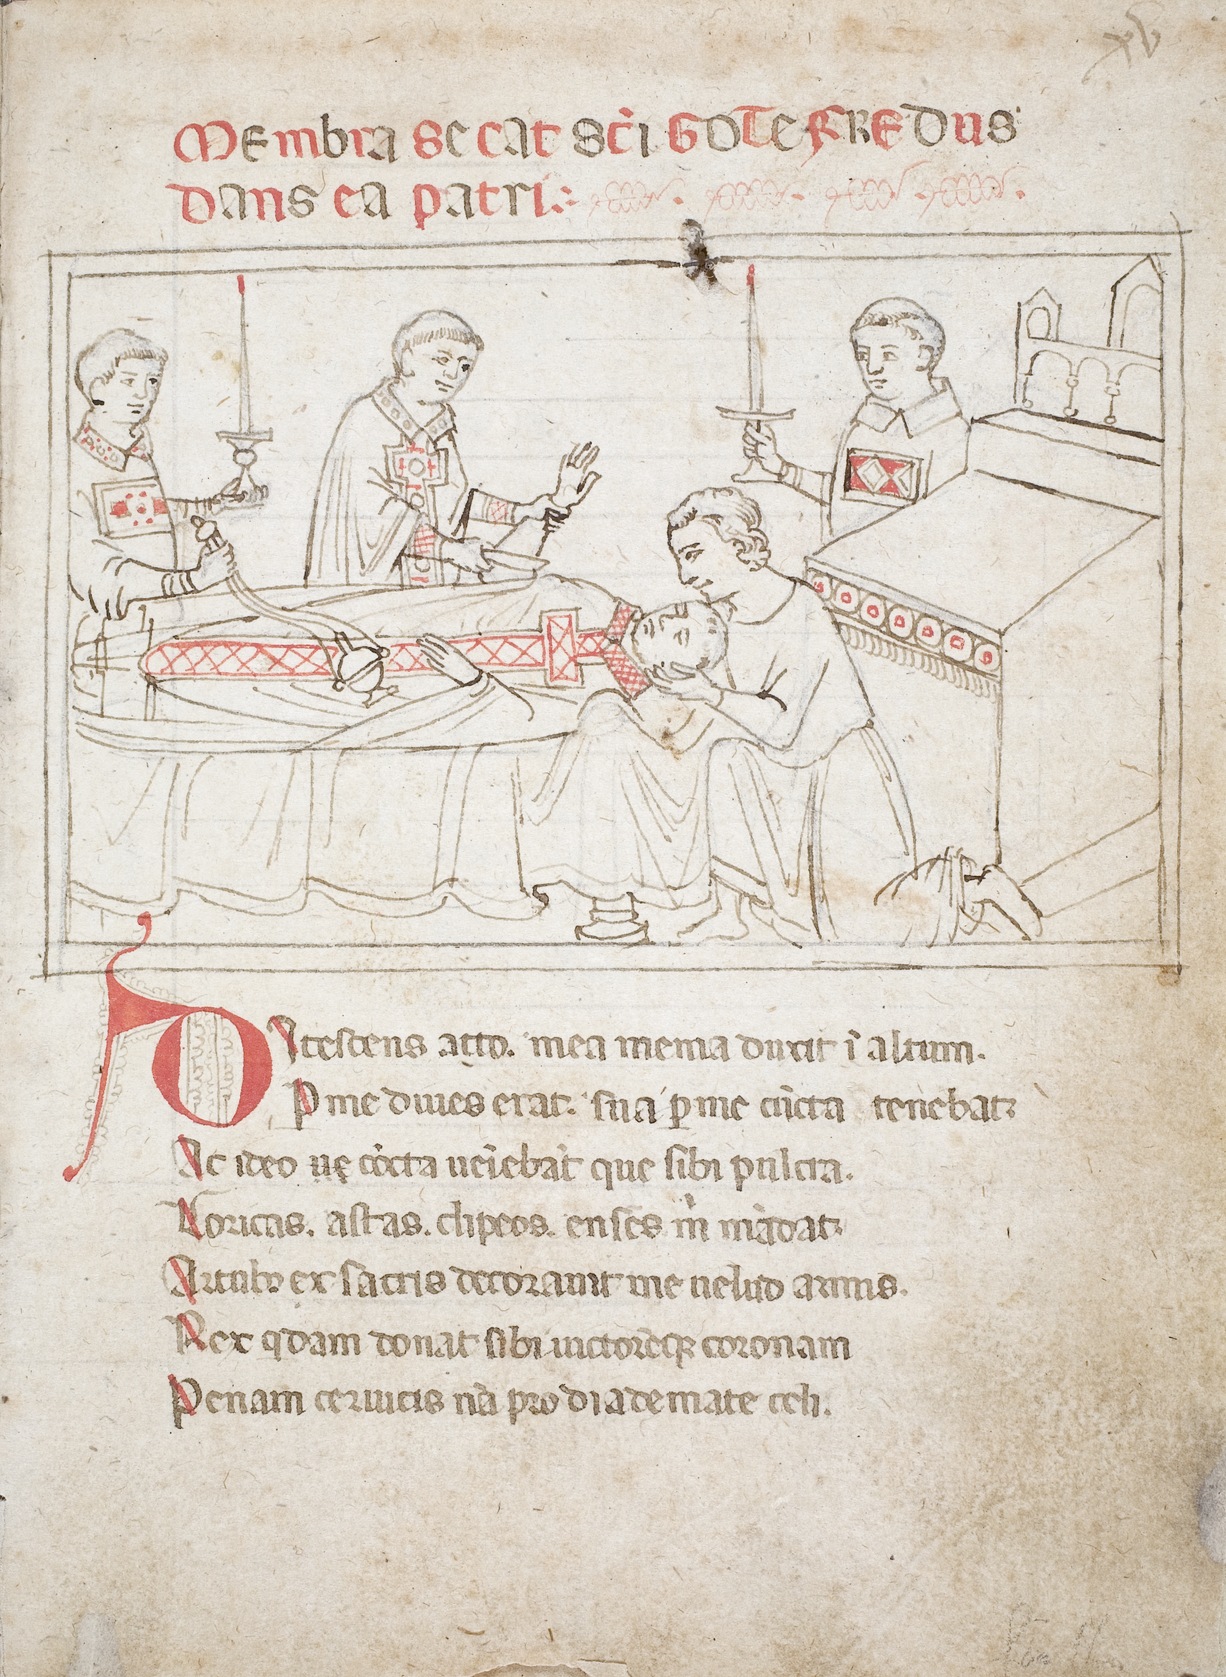 xv
Membra secat sc̄i Goteffredus
dans ea patri:
Ditescens atto. mea menia duxit ī altum.
P me diues erat. sua p me cūcta tenebat.
Ac ideo cōcta que sibi pulcra.
Loricas. astas. clipeos. enses m̄ mādat.
ex sacris decorauit me uelud armis.
Rex qdam donat sibi coronam
Penam ceruicis nr̄a pro diademate celi.